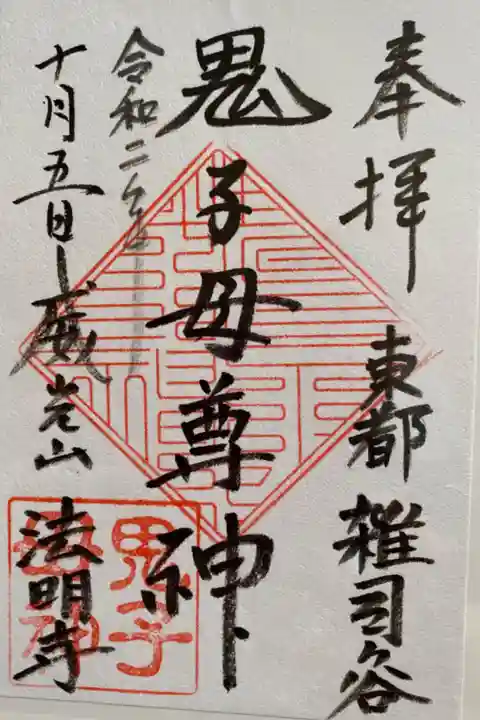 奉拝 東都 雑司ヶ谷
鬼子母尊神
令和二年
十月五日 威光山 法明寺